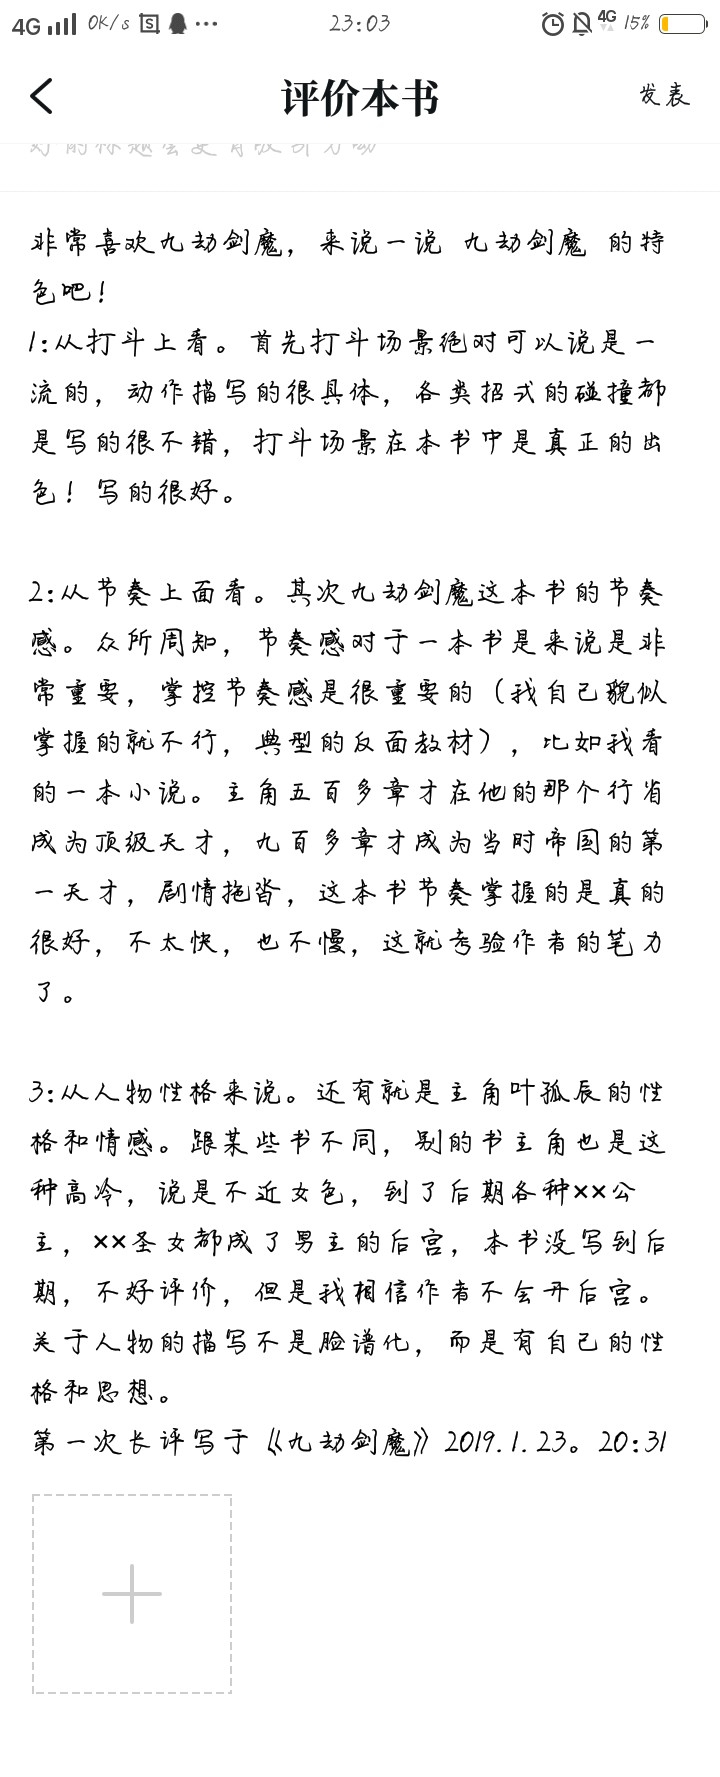 4G 0K/s S 23:03 4G 15%
评价本书 发表
好的标题会更有吸引力哦
非常喜欢九劫剑魔，来说一说 九劫剑魔 的特
色吧！
1:从打斗上看。首先打斗场景绝对可以说是一
流的，动作描写的很具体，各类招式的碰撞都
是写的很不错，打斗场景在本书中是真正的出
色！写的很好。
2:从节奏上面看。其次九劫剑魔这本书的节奏
感。众所周知，节奏感对于一本书是来说是非
常重要，掌控节奏感是很重要的（我自己貌似
掌握的就不行，典型的反面教材），比如我看
的一本小说。主角五百多章才在他的那个行省
成为顶级天才，九百多章才成为当时帝国的第
一天才，剧情拖沓，这本书节奏掌握的是真的
很好，不太快，也不慢，这就考验作者的笔力
了。
3:从人物性格来说。还有就是主角叶孤辰的性
格和情感。跟某些书不同，别的书主角也是这
种高冷，说是不近女色，到了后期各种××公
主，××圣女都成了男主的后宫，本书没写到后
期，不好评价，但是我相信作者不会开后宫。
关于人物的描写不是脸谱化，而是有自己的性
格和思想。
第一次长评写于《九劫剑魔》2019.1.23。20:31